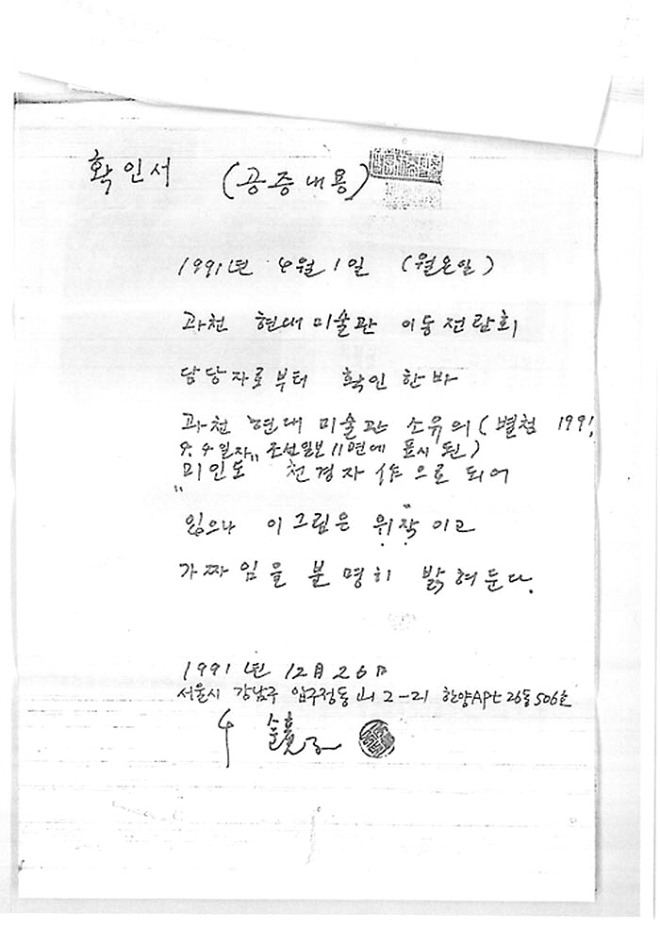 확인서 (공증내용)
1991년 4월 1일 (월요일)
과천 현대미술관 이동전람회
담당자로부터 확인한바
과천 현대 미술관 소유의 (별첨 1991.
4.4일자 조선일보 11면에 표시된)
"미인도" 천경자 作으로 되어
있으나 이그림은 위작이고
가짜임을 분명히 밝혀둔다.
1991년 12月 26日
서울시 강남구 압구정동 山 2-21 한양Apt 26동 506호
千鏡子